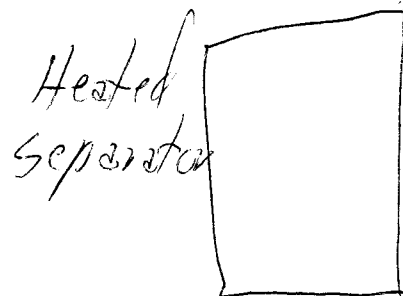 Heated
Separator